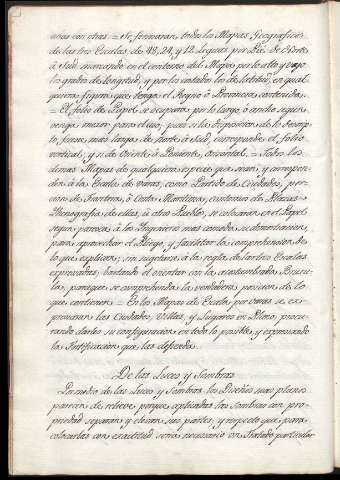 unas con otras = Se formaran todos los Mapas Geograficos
de las tres Escalas de 48, 24, y 12 Leguas por Pie de Norte
à Sud, marcando en el contorno del Mapa por lo alto y vajo
los grados de Longitud, y por los costados los de Latitud, en qual
quiera figura que tenga el Reyno ò Provincia contenida.
= El folio de Papel se ocupará por lo largo, ò ancho segun
venga mejor para el uso, pues si la disposicion de lo descrip
to, fuese mas larga de Norte à Sud, corresponde el folio
vertical, y si de Oriente à Poniente, orizontal. = Todos los
demas Mapas de qualquiera especie que sean, y correspon
dan à la Escala de varas, como Partido de Ciudades, por
cion de Frontera, ò Costa Maritima, contornos de Plazas
Ichnografia de ellas, ù otro Pueblo, se colocaran en el Papel
segun parezca à los Ingenieros mas comodo, su demostracion,
para aprovechar el Pliego, y facilitar la comprehension de
lo que explican; sin sugetarse à la regla de las tres Escalas
expresadas, bastando el orientar con la acostumbrada Bruxu
la, para que se comprehenda la verdadera posicion de lo
que contienen = En los Mapas de Escala por varas se ex
presaran las Ciudades, Villas, y Lugares en Plano, procu
rando darles su configuracion en todo lo posible, y expresando
la Fortificacion que las defienda.
De las Luces y Sombras
Por medio de las Luces y Sombras, los Diseños mas planos
parecen de relieve, porque aplicadas las Sombras con pro
piedad separan y elevan sus partes, y respecto que para
colocarlas con exactitud seria necesario un Tratado particular